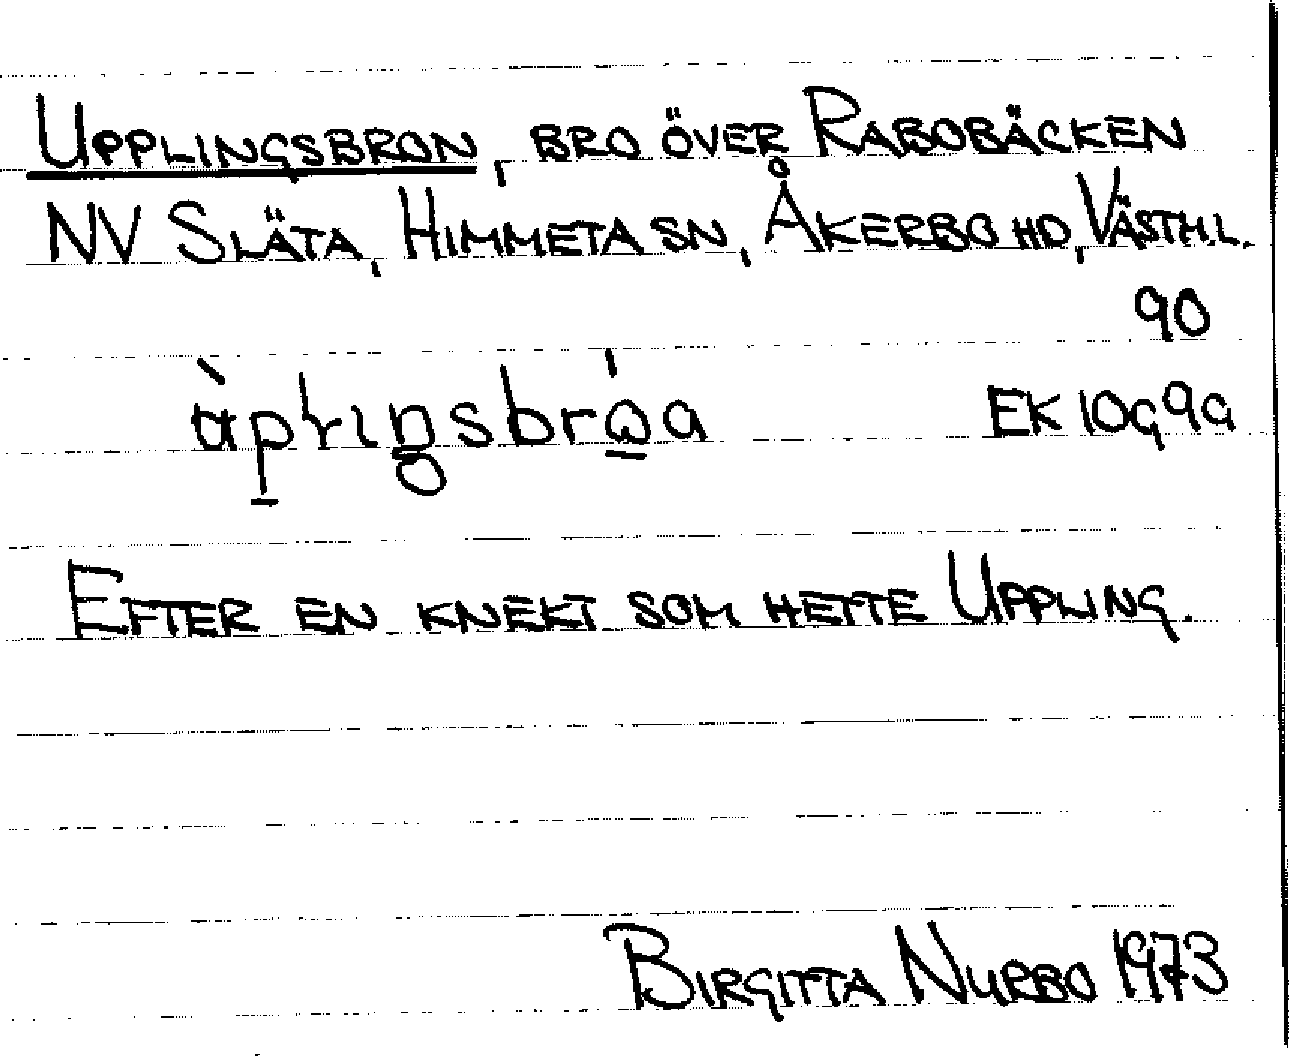 UPPLINGSBRON, BRO ÖVER RABOBÄCKEN
NV SLÄTA, HIMMETA SN, ÅKERBO HD, VÄSTM.L.
90
EK 10G9a
EFTER EN KNEKT SOM HETTE UPPLING.
BIRGITTA NURBO 1973